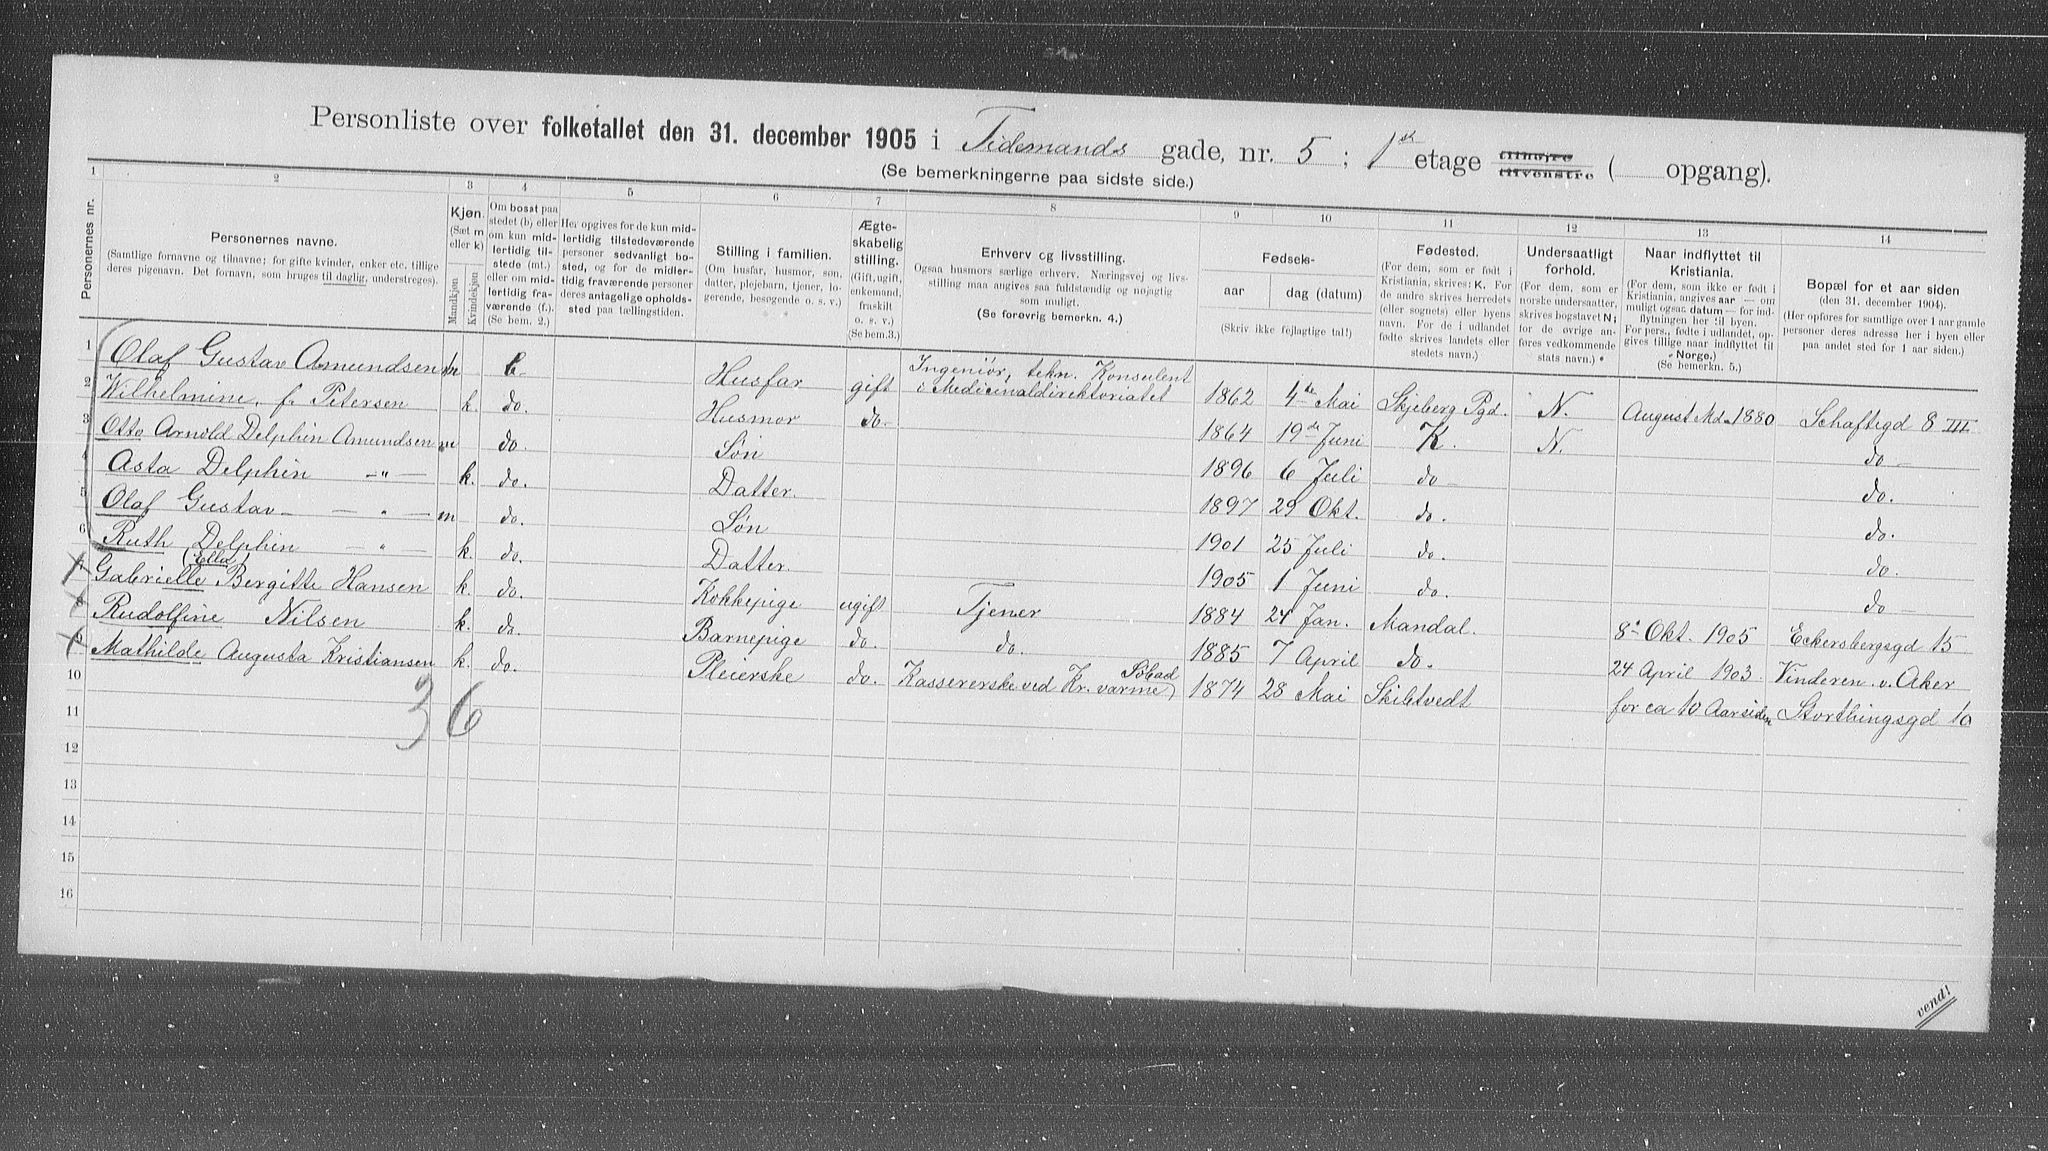 Personliste over folketallet den 31. december 1905 i Tidemands gade, nr. 5; 1ste etage tilhøjre tilvenstre ( opgang).
(Se bemerkningerne paa sidste side.)
1 2 3 4 5 6 7 8 9 10 11 12 13 14
Personernes nr.
Personernes navne.
(Samtlige fornavne og tilnavne; for gifte kvinder, enker etc. tillige deres pigenavn. Det fornavn, som bruges til daglig, understreges).
Kjøn.
(Sæt m eller k)
Mandkjøn
Kvindekjøn
Om bosat paa stedet (b) eller om kun midlertidig tilstede (mt.) eller om midlertidig fraværende (f.). (Se bem. 2.)
Her opgives for de kun midlertidig tilstedeværende personer sedvanligt bosted, og for de midlertidig fraværende personer deres antagelige opholdssted paa tællingstiden.
Stilling i familien.
(Om husfar, husmor, søn, datter, plejebarn, tjener, logerende, besøgende o. s. v.)
Ægteskabelig stilling.
(Gift, ugift, enkemand, fraskilt o. s. v.)
(Se bem. 3.)
Erhverv og livsstilling.
Ogsaa husmors særlige erhverv. Næringsvej og livsstilling maa angives saa fuldstændig og nøjagtig som muligt.
(Se forøvrig bemerkn. 4.)
Fødsels-
aar
dag (datum)
(Skriv ikke fejlagtige tal!)
Fødested.
(For dem, som er født i Kristiania, skrives: K. For de andre skrives herredets (eller sognets) eller byens navn. For de i udlandet fødte skrives landets eller stedets navn.)
Undersaatligt forhold.
(For dem, som er norske undersaatter, skrives bogstavet N; for de øvrige anføres vedkommende stats navn.)
Naar indflyttet til Kristiania.
(For dem, som ikke er født i Kristiania, angives aar — om muligt ogsaa datum — for indflytningen her til byen. For pers., født i udlandet, opgives tillige naar indflyttet til Norge.)
(Se bemerkn. 5.)
Bopæl for et aar siden
(den 31. december 1904).
(Her opføres for samtlige over 1 aar gamle personer deres adresse her i byen eller paa andet sted for 1 aar siden.)
1 Olaf Gustav Amundsen m b. Husfar gift Ingeniør, tekn. Konsulent i Medicinaldirektoriatet 1862 4de Mai Skjeberg Pgd. N. August Md. 1880 Schaftsgd 8 III
2 Wilhelmine, f. Petersen k. do. Husmor do. 1864 19de Juni K. N. do
3 Otto Arnold Delphin Amundsen m do. Søn 1896 6 Juli do do.
4 Asta Delphin — " — k. do. Datter. 1897 29 Okt. do. do.
5 Olaf Gustav — — " — m do. Søn 1901 25 Juli do. do.
6 Ruth Delphin — " — k. do. Datter. 1905 1 Juni do. do
(Ella)
7 Gabrielle Bergitte Hansen k do. Kokkepige ugift Tjener 1884 24 Jan. Mandal. 8de Okt. 1905 Eckersbergsgd 15
8 Rudolfine Nilsen k. do. Barnepige do. do. 1885 7 April do. 24 April 1903 Vinderen v. Aker
9 Mathilde Augusta Kristiansen k. do. Pleierske do. Kassererske ved Kr. varme Søbad 1874 28 Mai Skibtvedt for ca 10 Aar siden Storthingsgd 10
10
36
11
12
13
14
15
16
vend!